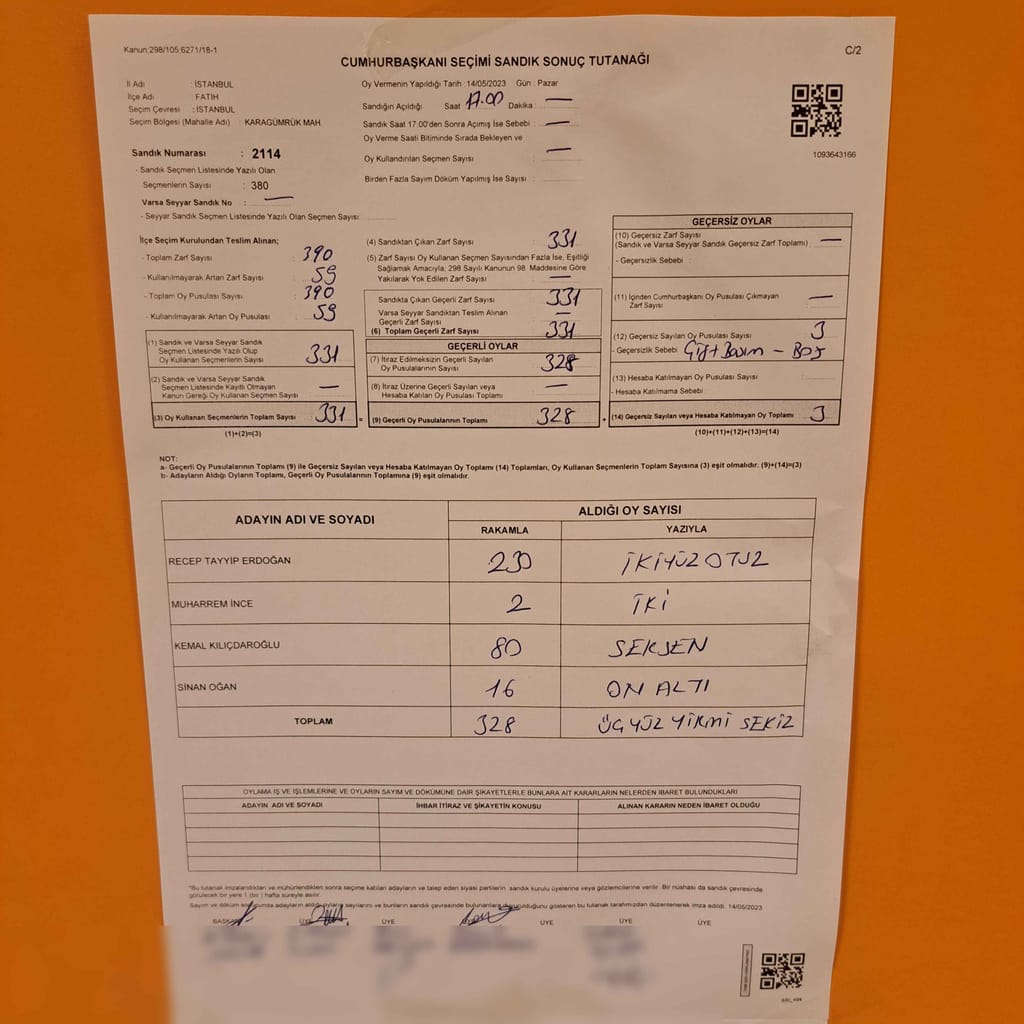 Kanun:298/105;6271/18-1
C/2
CUMHURBAŞKANI SEÇİMİ SANDIK SONUÇ TUTANAĞI
İl Adı : İSTANBUL
İlçe Adı : FATİH
Seçim Çevresi : İSTANBUL
Seçim Bölgesi (Mahalle Adı) : KARAGÜMRÜK MAH.
Sandık Numarası : 2114
- Sandık Seçmen Listesinde Yazılı Olan
Seçmenlerin Sayısı : 380
Varsa Seyyar Sandık No : —
- Seyyar Sandık Seçmen Listesinde Yazılı Olan Seçmen Sayısı:
Oy Vermenin Yapıldığı Tarih : 14/05/2023 Gün : Pazar
Sandığın Açıldığı Saat 17.00 Dakika : —
Sandık Saat 17:00'den Sonra Açımış İse Sebebi : —
Oy Verme Saati Bitiminde Sırada Bekleyen ve
Oy Kullandırılan Seçmen Sayısı : —
Birden Fazla Sayım Döküm Yapılmış İse Sayısı :
1093643166
İlçe Seçim Kurulundan Teslim Alınan;
- Toplam Zarf Sayısı : 390
- Kullanılmayarak Artan Zarf Sayısı : 59
- Toplam Oy Pusulası Sayısı : 390
- Kullanılmayarak Artan Oy Pusulası : 59
(1) Sandık ve Varsa Seyyar Sandık
Seçmen Listesinde Yazılı Olup
Oy Kullanan Seçmenlerin Sayısı 331
(2) Sandık ve Varsa Seyyar Sandık
Seçmen Listesinde Kayıtlı Olmayan
Kanun Gereği Oy Kullanan Seçmen Sayısı —
(3) Oy Kullanan Seçmenlerin Toplam Sayısı 331
(1)+(2)=(3)
(4) Sandıktan Çıkan Zarf Sayısı : 331
(5) Zarf Sayısı Oy Kullanan Seçmen Sayısından Fazla İse, Eşitliği
Sağlamak Amacıyla, 298 Sayılı Kanunun 98. Maddesine Göre
Yakılarak Yok Edilen Zarf Sayısı : —
Sandıkta Çıkan Geçerli Zarf Sayısı : 331
Varsa Seyyar Sandıktan Teslim Alınan
Geçerli Zarf Sayısı : —
(6) Toplam Geçerli Zarf Sayısı : 331
GEÇERLİ OYLAR
(7) İtiraz Edilmeksizin Geçerli Sayılan
Oy Pusulalarının Sayısı : 328
(8) İtiraz Üzerine Geçerli Sayılan veya
Hesaba Katılan Oy Pusulası Toplamı : —
= (9) Geçerli Oy Pusulalarının Toplamı 328
GEÇERSİZ OYLAR
(10) Geçersiz Zarf Sayısı
(Sandık ve Varsa Seyyar Sandık Geçersiz Zarf Toplamı) : —
- Geçersizlik Sebebi :
(11) İçinden Cumhurbaşkanı Oy Pusulası Çıkmayan
Zarf Sayısı : —
(12) Geçersiz Sayılan Oy Pusulası Sayısı : 3
- Geçersizlik Sebebi Çift Basım - Boş
(13) Hesaba Katılmayan Oy Pusulası Sayısı :
- Hesaba Katılmama Sebebi :
+ (14) Geçersiz Sayılan veya Hesaba Katılmayan Oy Toplamı : 3
(10)+(11)+(12)+(13)=(14)
NOT:
a- Geçerli Oy Pusulalarının Toplamı (9) ile Geçersiz Sayılan veya Hesaba Katılmayan Oy Toplamı (14) Toplamları, Oy Kullanan Seçmenlerin Toplam Sayısına (3) eşit olmalıdır. (9)+(14)=(3)
b- Adayların Aldığı Oyların Toplamı, Geçerli Oy Pusulalarının Toplamına (9) eşit olmalıdır.
ADAYIN ADI VE SOYADI ALDIĞI OY SAYISI
RAKAMLA YAZIYLA
RECEP TAYYİP ERDOĞAN 230 İKİYÜZ OTUZ
MUHARREM İNCE 2 İKİ
KEMAL KILIÇDAROĞLU 80 SEKSEN
SİNAN OĞAN 16 ON ALTI
TOPLAM 328 ÜÇ YÜZ YİRMİ SEKİZ
OYLAMA İŞ VE İŞLEMLERİNE VE OYLARIN SAYIM VE DÖKÜMÜNE DAİR ŞİKAYETLERLE BUNLARA AİT KARARLARIN NELERDEN İBARET BULUNDUKLARI
ADAYIN ADI VE SOYADI İHBAR İTİRAZ VE ŞİKAYETİN KONUSU ALINAN KARARIN NEDEN İBARET OLDUĞU
"Bu tutanak imzalandıktan ve mühürlendikten sonra seçime katılan adayların ve talep eden siyasi partilerin sandık kurulu üyelerine veya gözlemcilerine verilir. Bir nüshası da sandık çevresinde
görülecek bir yere 1 (bir) hafta süreyle asılır.
Sayım ve döküm sonucunda adayların aldığı oyların sayılarını ve bunların sandık çevresinde bulunanlara duyurulduğunu gösteren bu tutanak tarafımızdan düzenlenerek imza edildi. 14/05/2023
BAŞKAN ÜYE ÜYE ÜYE ÜYE ÜYE